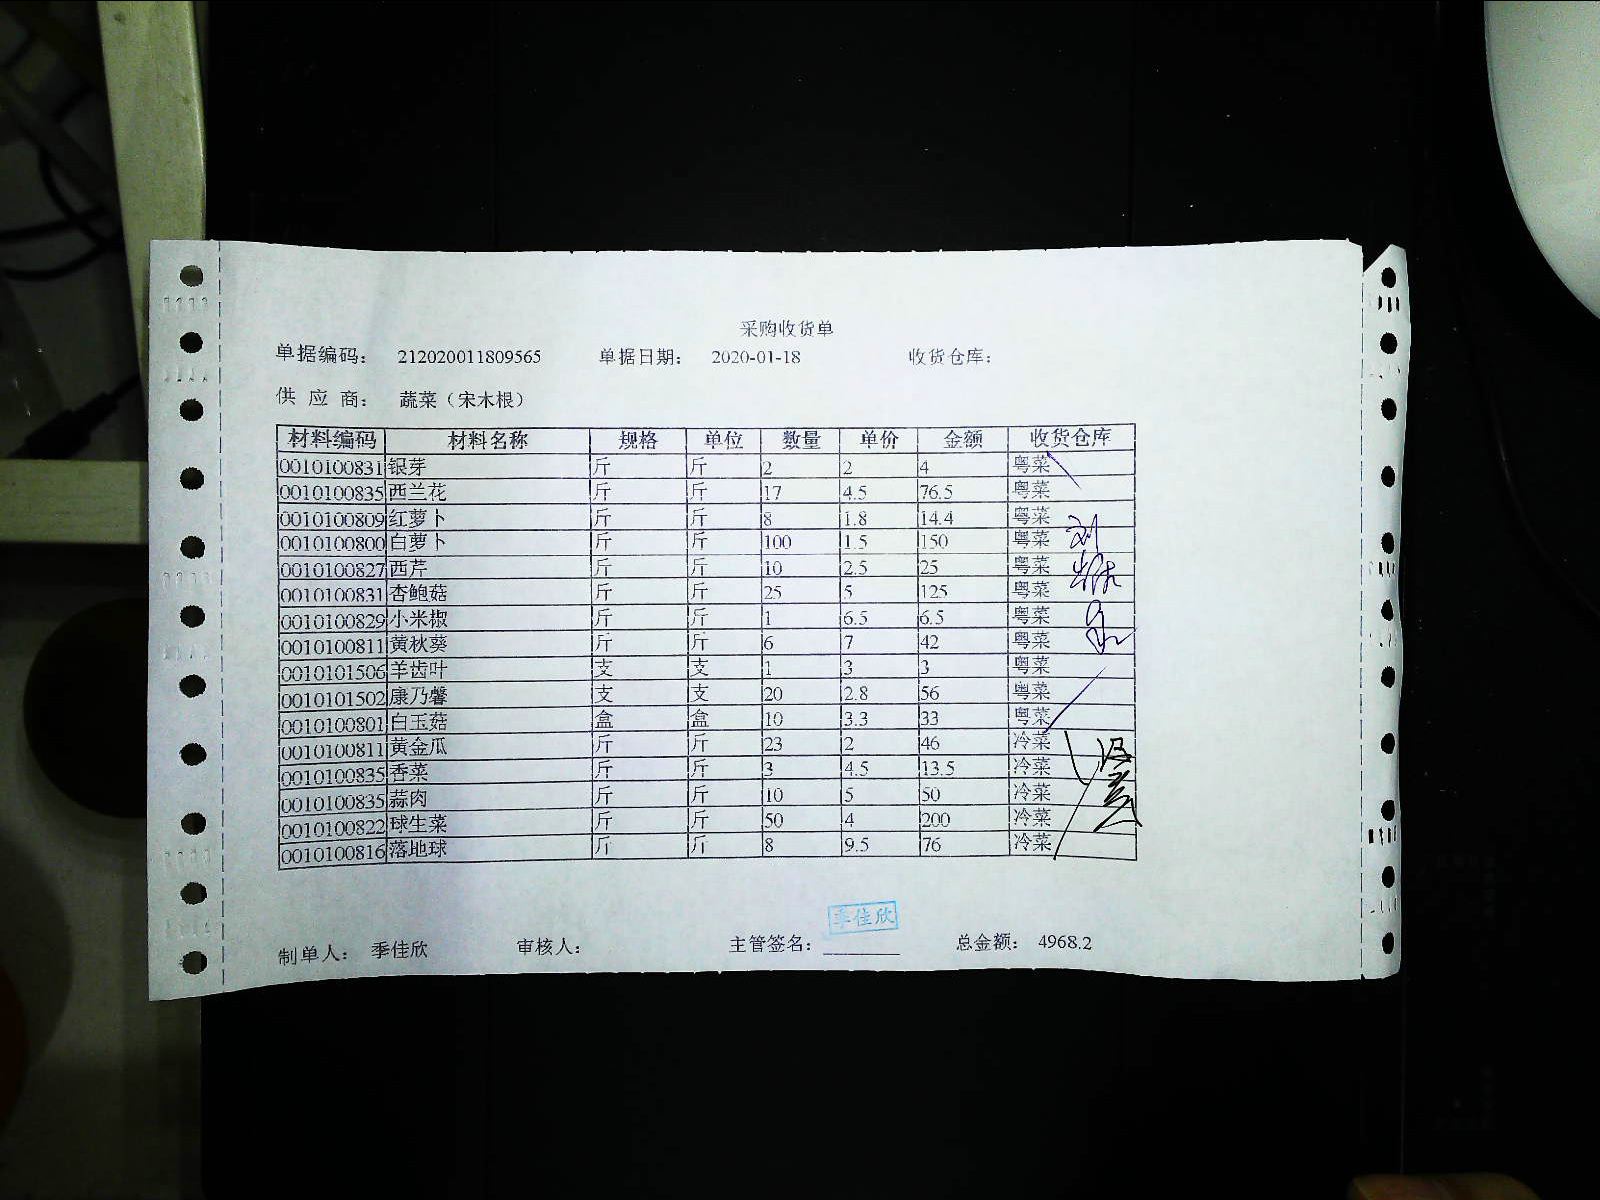 采购收货单
单据编码： 212020011809565 单据日期： 2020-01-18 收货仓库：
供 应 商： 蔬菜（宋木根）
材料编码 材料名称 规格 单位 数量 单价 金额 收货仓库
0010100831 银芽 斤 斤 2 2 4 粤菜
0010100835 西兰花 斤 斤 17 4.5 76.5 粤菜
0010100809 红萝卜 斤 斤 8 1.8 14.4 粤菜
0010100800 白萝卜 斤 斤 100 1.5 150 粤菜
0010100827 西芹 斤 斤 10 2.5 25 粤菜
0010100831 杏鲍菇 斤 斤 25 5 125 粤菜
0010100829 小米椒 斤 斤 1 6.5 6.5 粤菜
0010100811 黄秋葵 斤 斤 6 7 42 粤菜
0010101506 羊齿叶 支 支 1 3 3 粤菜
0010101502 康乃馨 支 支 20 2.8 56 粤菜
0010100801 白玉菇 盒 盒 10 3.3 33 粤菜
0010100811 黄金瓜 斤 斤 23 2 46 冷菜
0010100835 香菜 斤 斤 3 4.5 13.5 冷菜
0010100835 蒜肉 斤 斤 10 5 50 冷菜
0010100822 球生菜 斤 斤 50 4 200 冷菜
0010100816 落地球 斤 斤 8 9.5 76 冷菜
季佳欣
制单人： 季佳欣 审核人： 主管签名： 总金额： 4968.2